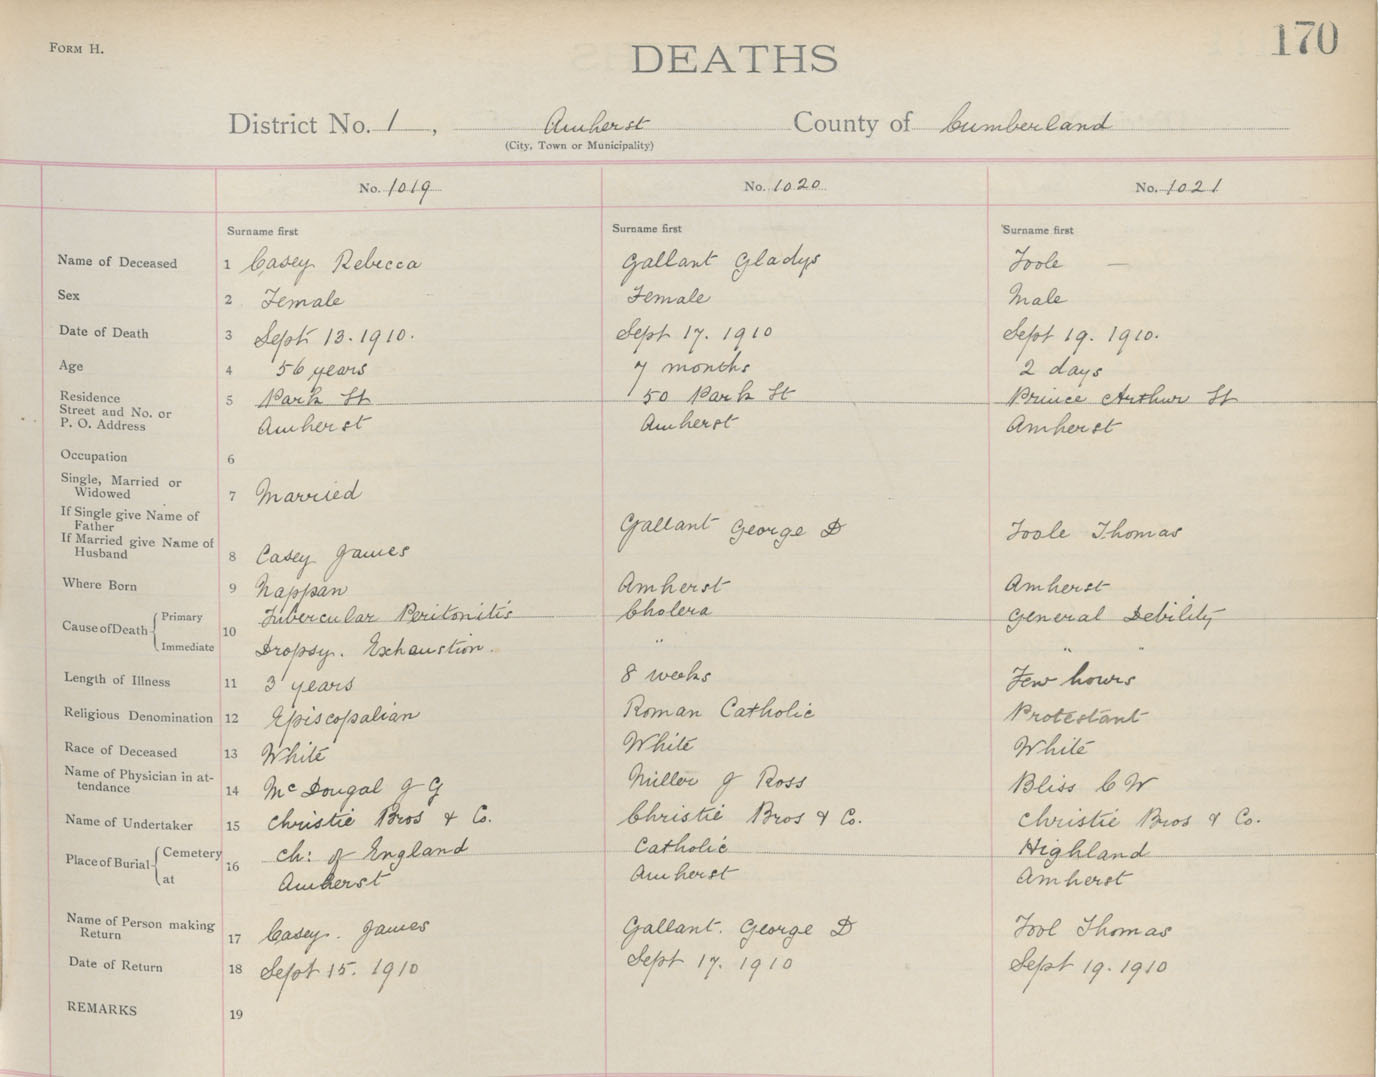 FORM H.
170
DEATHS
District No. 1, Amherst County of Cumberland
(City, Town or Municipality)
No. 1019 No. 1020 No. 1021
Surname first Surname first Surname first
Name of Deceased 1 Casey Rebecca Gallant Gladys Toole —
Sex 2 Female Female Male
Date of Death 3 Sept 13. 1910. Sept 17. 1910 Sept 19. 1910.
Age 4 56 years 7 months 2 days
Residence 5 Park St 50 Park St Prince Arthur St
Street and No. or
P. O. Address Amherst Amherst Amherst
Occupation 6
Single, Married or
Widowed 7 Married
If Single give Name of
Father Gallant George D Toole Thomas
If Married give Name of
Husband 8 Casey James
Where Born 9 Nappan Amherst Amherst
Cause of Death Primary 10 Tubercular Peritonitis Cholera General Debility
Immediate Dropsy. Exhaustion. " " "
Length of Illness 11 3 years 8 weeks Few hours
Religious Denomination 12 Episcopalian Roman Catholic Protestant
Race of Deceased 13 White White White
Name of Physician in at-
tendance 14 McDougal J G Miller J Ross Bliss C W
Name of Undertaker 15 Christie Bros & Co. Christie Bros & Co. Christie Bros & Co.
Place of Burial Cemetery 16 Ch: of England Catholic Highland
at Amherst Amherst Amherst
Name of Person making
Return 17 Casey. James Gallant. George D Tool Thomas
Date of Return 18 Sept 15. 1910 Sept 17. 1910 Sept 19. 1910
REMARKS 19